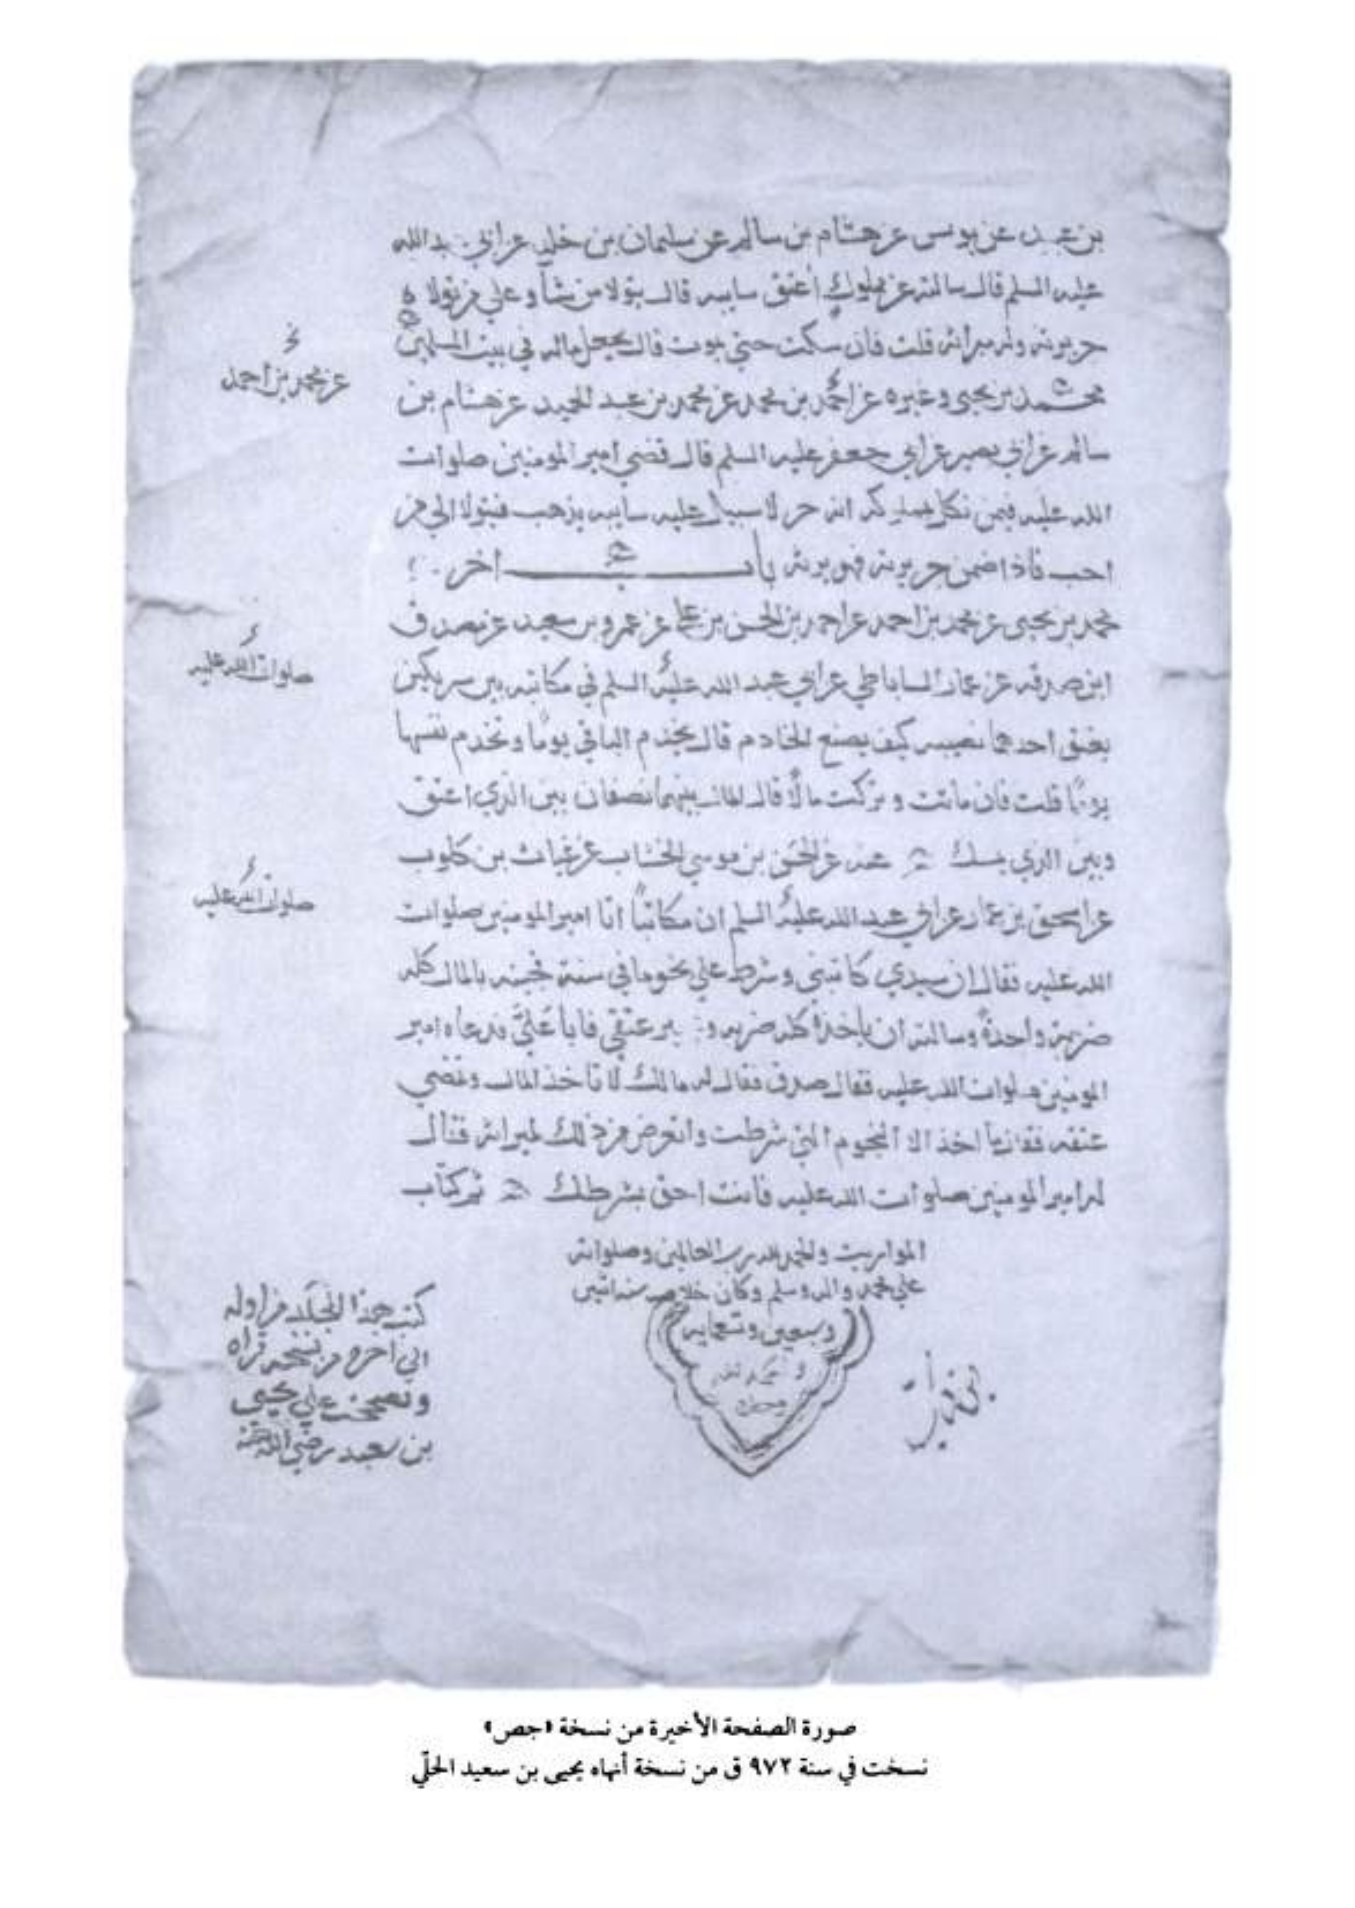 بن عبيد عن يونس عن هشام بن سالم عن سليمان بن خلد عن ابي عبدالله
عليه السلم قال سالته عن مملوك اعتق سايبه قال يتولا من شأ وعلي من تولا ه
جريرته وله ميراثه قلت فان سكت حتي يموت قال يجعل ماله في بيت المسلمين
عن محمد بن احمد
محمد بن يحيى وغيره عن احمد بن محمد عن محمد بن عبد الحميد عن هشام بن
سالم عن ابي بصير عن ابي جعفر عليه السلم قال قضي امير المومنين صلوات
الله عليه فيمن نكل بمملوكه انه حر لا سبيل عليه سايبه يذهب فيتولا الي من
احب فاذا ضمن جريرته فهو يرثه باب اخر
محمد بن يحيى عن محمد بن احمد عن احمد بن الحسن بن علي عن عمرو بن سعيد عن مصدق
صلوات الله عليه
ابن صدقه عن عمار الساباطي عن ابي عبد الله عليه السلم في مكاتبه بين سريكين
يعتق احدهما نصيبه كيف يصنع الخادم قال يخدم الباقي يوماً وتخدم نفسها
يوماً قلت فان ماتت وتركت مالاً قال المال بينهما نصفان بين الذي اعتق
وبين الذي يمسك عنه عن الحسن بن موسي الخشاب عن غياث بن كلوب
صلوات الله عليه
عن اسحق بن عمار عن ابي عبد الله عليه السلم ان مكاتباً اتا امير المومنين صلوات
الله عليه فقال ان سيدي كاتبني وشرط علي نجوما في سنة فجيته بالمال كله
ضربة واحدة وسالته ان ياخذه كله ضربه و يبر عتقي فابا عليّ فدعاه امير
المومنين صلوات الله عليه فقال صدق فقال له مالك لا تاخذ المال وتمضي
عتقه فقال ما اخذ الا النجوم التي شرطت واتعرض من ذلك لميراثه فقال
له امير المومنين صلوات الله عليه فانت احق بشرطك تم كتاب
المواريث والحمد لله رب العالمين وصلواته
علي محمد واله وسلم وكان خلاصه سنه اثنين
وسبعين وتسعمايه
كتب هذا المجلد من اوله
الي اخره من نسخه قراه
وتصححت علي يحيى
بن سعيد رضي الله عنه
صورة الصفحة الأخيرة من نسخة «جص»
نسخت في سنة ٩٧٢ ق من نسخة أنهاه يحيى بن سعيد الحلّي